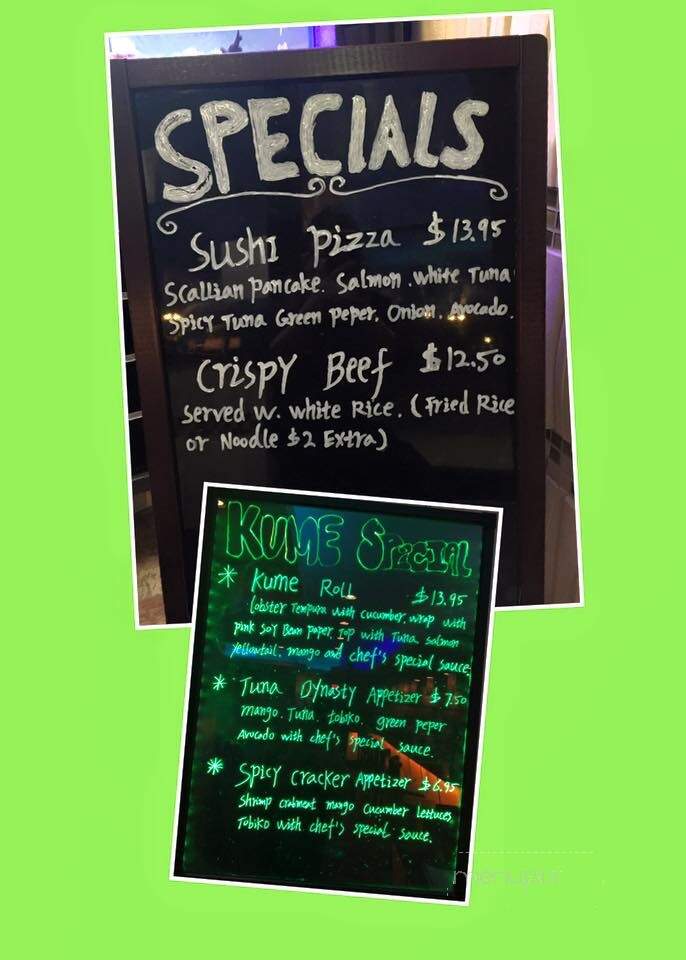 SPECIALS
Sushi Pizza $13.95
Scallian Pancake. Salmon. white Tuna
Spicy Tuna Green Peper. Onion. Avocado.
Crispy Beef $12.50
Served w. white Rice. (Fried Rice
or Noodle $2 Extra)
KUME SPECIAL
* Kume Roll $13.95
lobster Tempura with cucumber. wrap with
pink soy Bean paper. Top with Tuna. Salmon
yellowtail. mango and chef's special sauce.
* Tuna Dynasty Appetizer $7.50
mango. Tuna. tobiko. green peper
Avocado with chef's special sauce.
* Spicy Cracker Appetizer $6.95
Shrimp crabmeat mango cucumber lettuces
Tobiko with chef's special sauce.
menupix